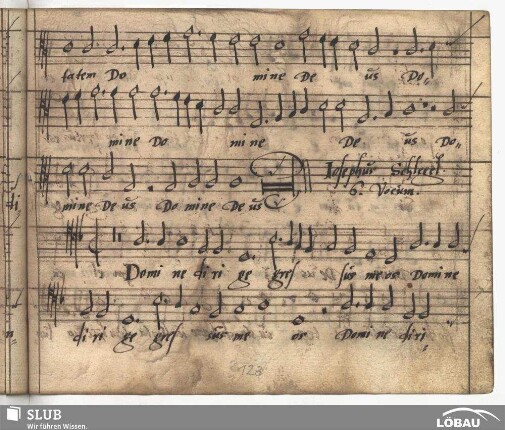 tatem Do mine De us Do
mine Do mine De us Do
mine De us Do mine De us
Josephus Schlegel
6. Vocum.
Domi ne di ri ge gres sus meos Domine
di ri ge gres sus me os Domi ne di ri
123
SLUB
Wir führen Wissen.
LÖBAU